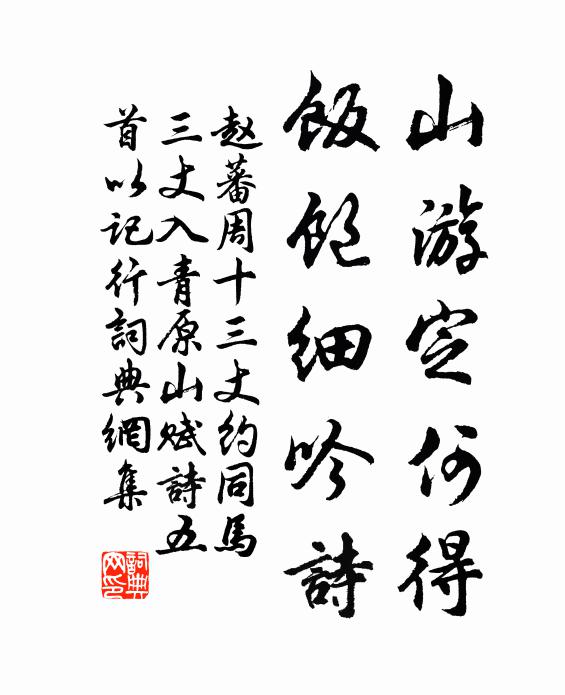 山游定何得
飯飽細吟詩
赵蕃周十三丈約同馬
三丈入青原山赋詩五
首以记行詞典網集
詞典网印